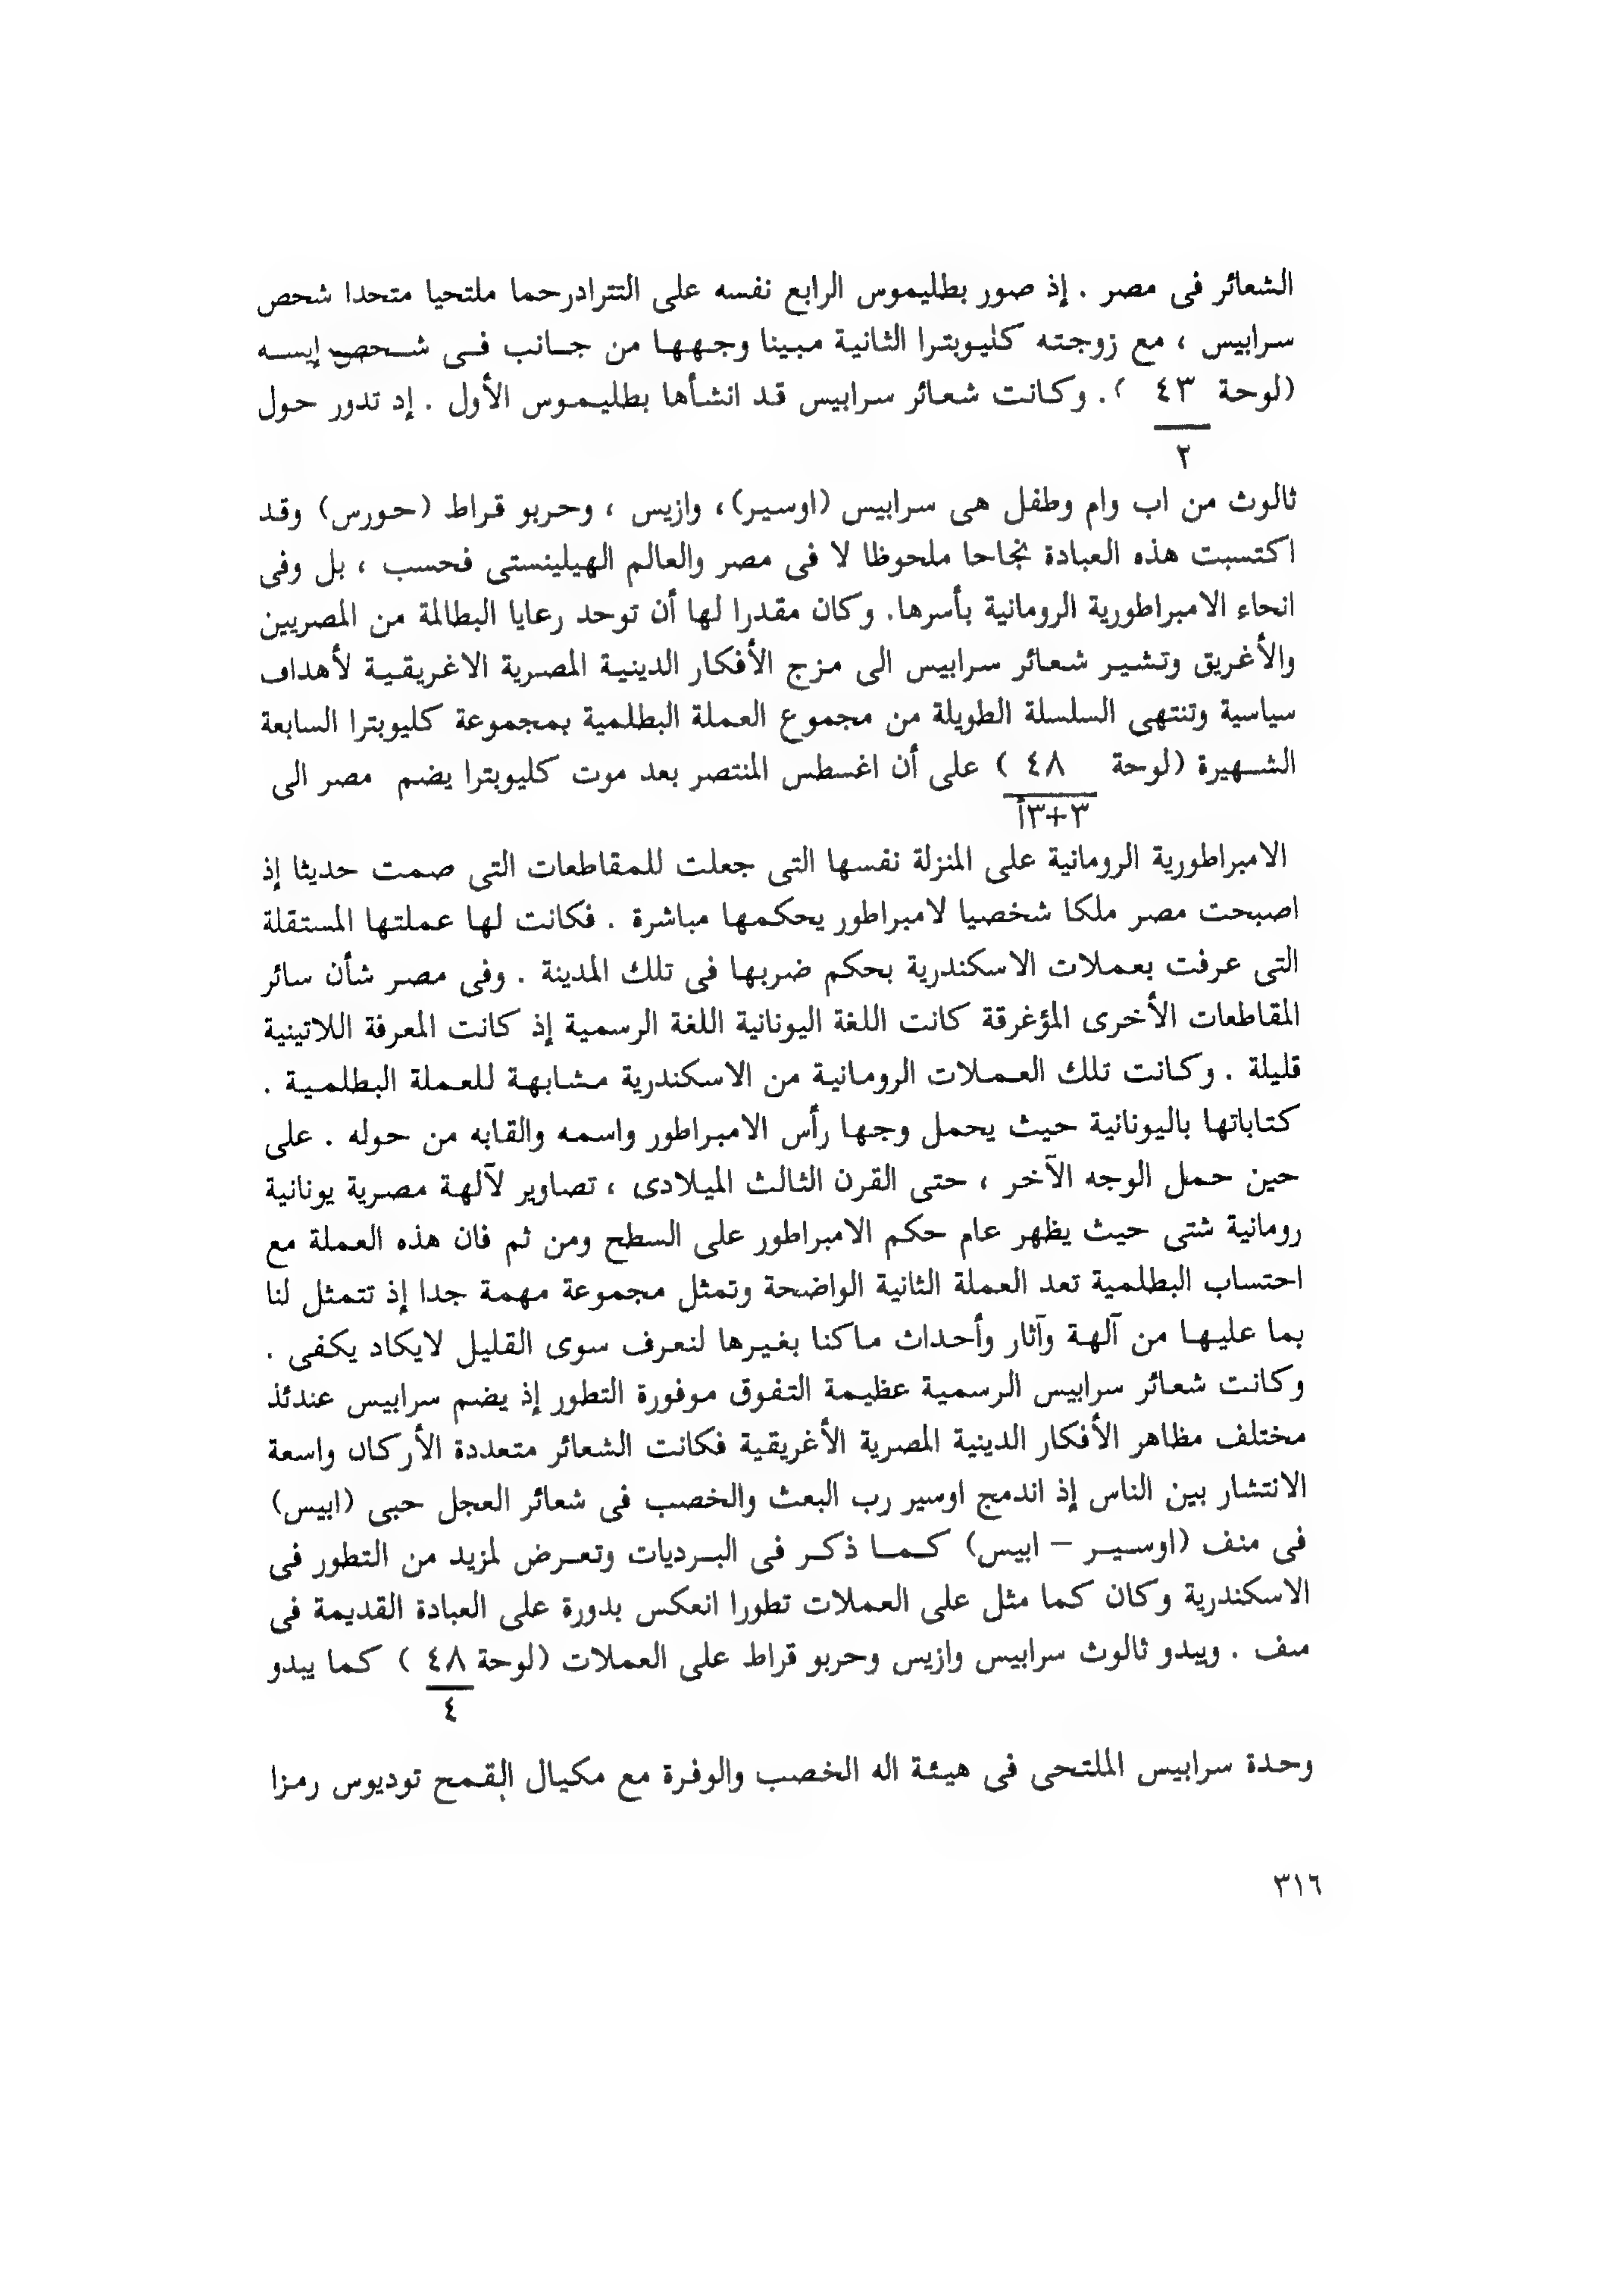 الشعائر فى مصر . إذ صور بطليموس الرابع نفسه على التترادرحما ملتحيا متحدا شحص
سرابيس ، مع زوجته كليوبترا الثانية مبينا وجهها من جانب فى شحص إيسه
(لوحة ٤٣ ). وكانت شعائر سرابيس قد انشأها بطليموس الأول . إد تدور حول
٢
ثالوث من اب وام وطفل هى سرابيس (اوسير)، وازيس ، وحربو قراط (حورس) وقد
اكتسبت هذه العبادة نجاحا ملحوظا لا فى مصر والعالم الهيلينستى فحسب ، بل وفى
انحاء الامبراطورية الرومانية بأسرها. وكان مقدرا لها أن توحد رعايا البطالمة من المصريين
والأغريق وتشير شعائر سرابيس الى مزج الأفكار الدينية المصرية الاغريقية لأهداف
سياسية وتنتهى السلسلة الطويلة من مجموع العملة البطلمية بمجموعة كليوبترا السابعة
الشهيرة (لوحة ٤٨ ) على أن اغسطس المنتصر بعد موت كليوبترا يضم مصر الى
٣+٣أ
الامبراطورية الرومانية على المنزلة نفسها التى جعلت للمقاطعات التى صمت حديثا إذ
اصبحت مصر ملكا شخصيا لامبراطور يحكمها مباشرة . فكانت لها عملتها المستقلة
التى عرفت بعملات الاسكندرية بحكم ضربها فى تلك المدينة . وفى مصر شأن سائر
المقاطعات الأخرى المؤغرقة كانت اللغة اليونانية اللغة الرسمية إذ كانت المعرفة اللاتينية
قليلة . وكانت تلك العملات الرومانية من الاسكندرية مشابهة للعملة البطلمية .
كتاباتها باليونانية حيث يحمل وجها رأس الامبراطور واسمه والقابه من حوله . على
حين حمل الوجه الآخر ، حتى القرن الثالث الميلادى ، تصاوير لآلهة مصرية يونانية
رومانية شتى حيث يظهر عام حكم الامبراطور على السطح ومن ثم فان هذه العملة مع
احتساب البطلمية تعد العملة الثانية الواضحة وتمثل مجموعة مهمة جدا إذ تتمثل لنا
بما عليها من آلهة وآثار وأحداث ماكنا بغيرها لنعرف سوى القليل لايكاد يكفى .
وكانت شعائر سرابيس الرسمية عظيمة التفوق موفورة التطور إذ يضم سرابيس عندئذ
مختلف مظاهر الأفكار الدينية المصرية الأغريقية فكانت الشعائر متعددة الأركان واسعة
الانتشار بين الناس إذ اندمج اوسير رب البعث والخصب فى شعائر العجل حبى (ابيس)
فى منف (اوسير - ابيس) كما ذكر فى البرديات وتعرض لمزيد من التطور فى
الاسكندرية وكان كما مثل على العملات تطورا انعكس بدورة على العبادة القديمة فى
منف . ويبدو ثالوث سرابيس وازيس وحربو قراط على العملات (لوحة ٤٨ ) كما يبدو
٤
وحدة سرابيس الملتحى فى هيئة اله الخصب والوفرة مع مكيال القمح توديوس رمزا
٣١٦